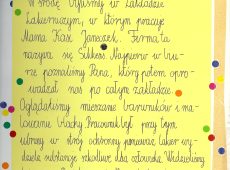 W środę byliśmy w zakładzie
lakierniczym, w którym pracuje
Mama Kasi Janeczek. Firma ta
nazywa się Sukces. Najpierw w biu-
rze poznaliśmy Pana, który potem opro-
wadzał nas po całym zakładzie.
Oglądaliśmy mieszanie barwników i ma-
lowanie blachy. Pracownik był przy tym
ubrany w strój ochronny, ponieważ lakier wy-
dziela substancje szkodliwe dla człowieka. Widzieliśmy